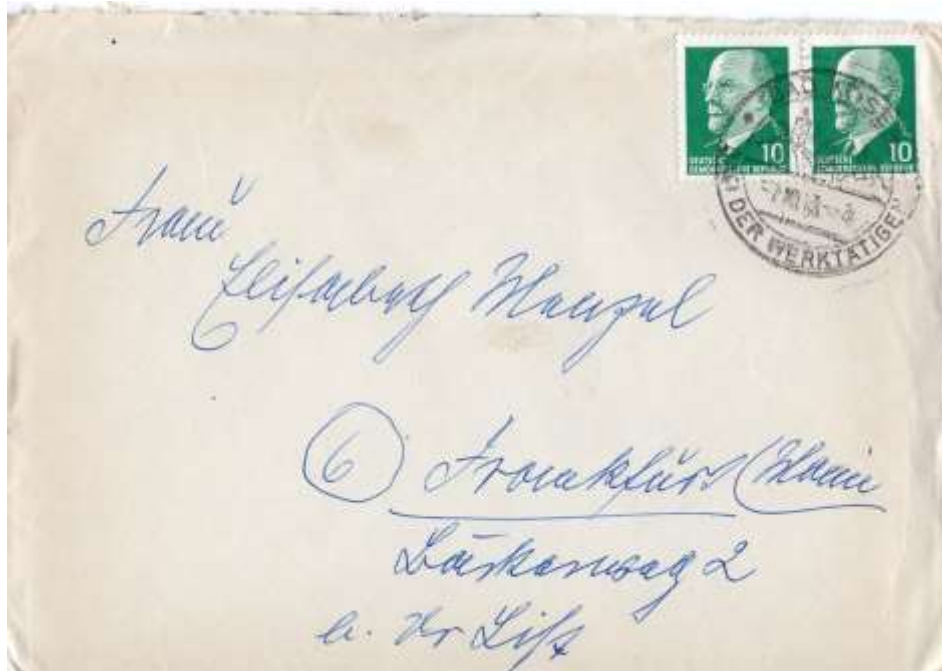 10
DEUTSCHE
DEMOKRATISCHE REPUBLIK
10
DEUTSCHE
DEMOKRATISCHE REPUBLIK
BAD KÖSE
DER WERKTÄTIGEN
Frau
Elisabeth Menzel
6 Frankfurt (Main
Bäckerweg 2
b. Dr